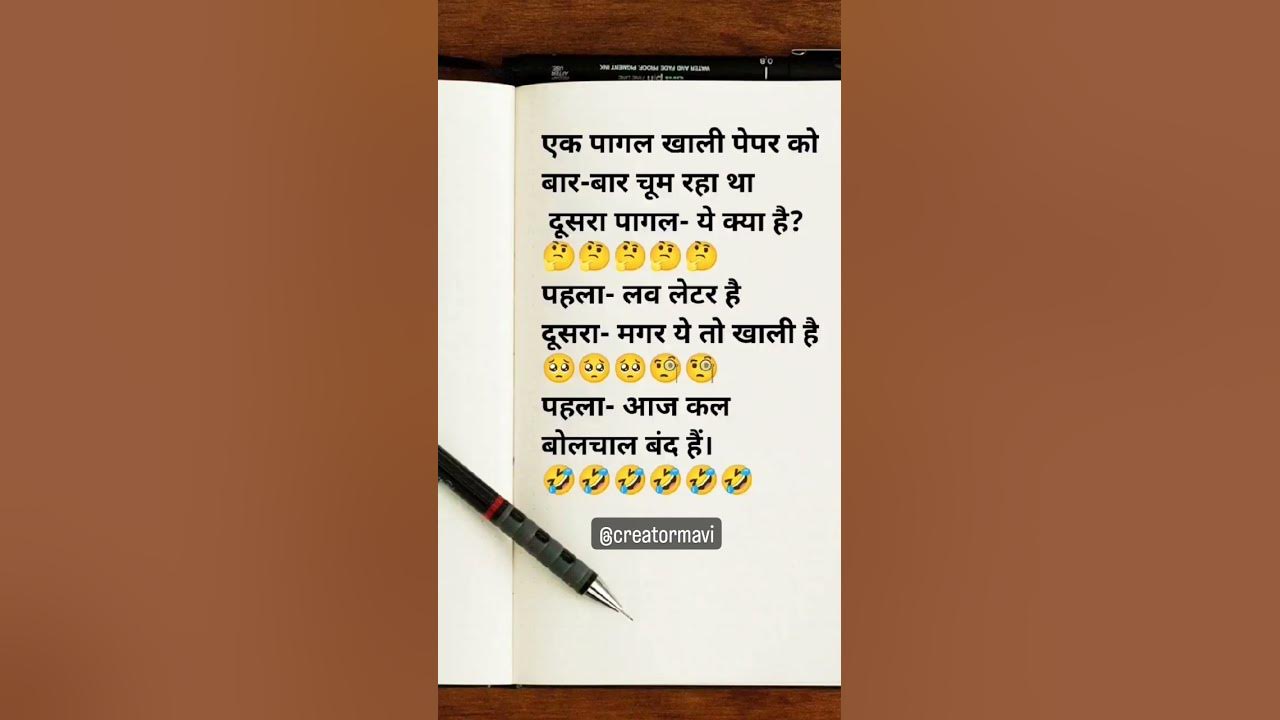 WATER AND FADE PROOF, PIGMENT INK
0.8
एक पागल खाली पेपर को
बार-बार चूम रहा था
दूसरा पागल- ये क्या है?
🤔🤔🤔🤔🤔
पहला- लव लेटर है
दूसरा- मगर ये तो खाली है
🥺🥺🥺🧐🧐
पहला- आज कल
बोलचाल बंद हैं।
🤣🤣🤣🤣🤣🤣
@creatormavi